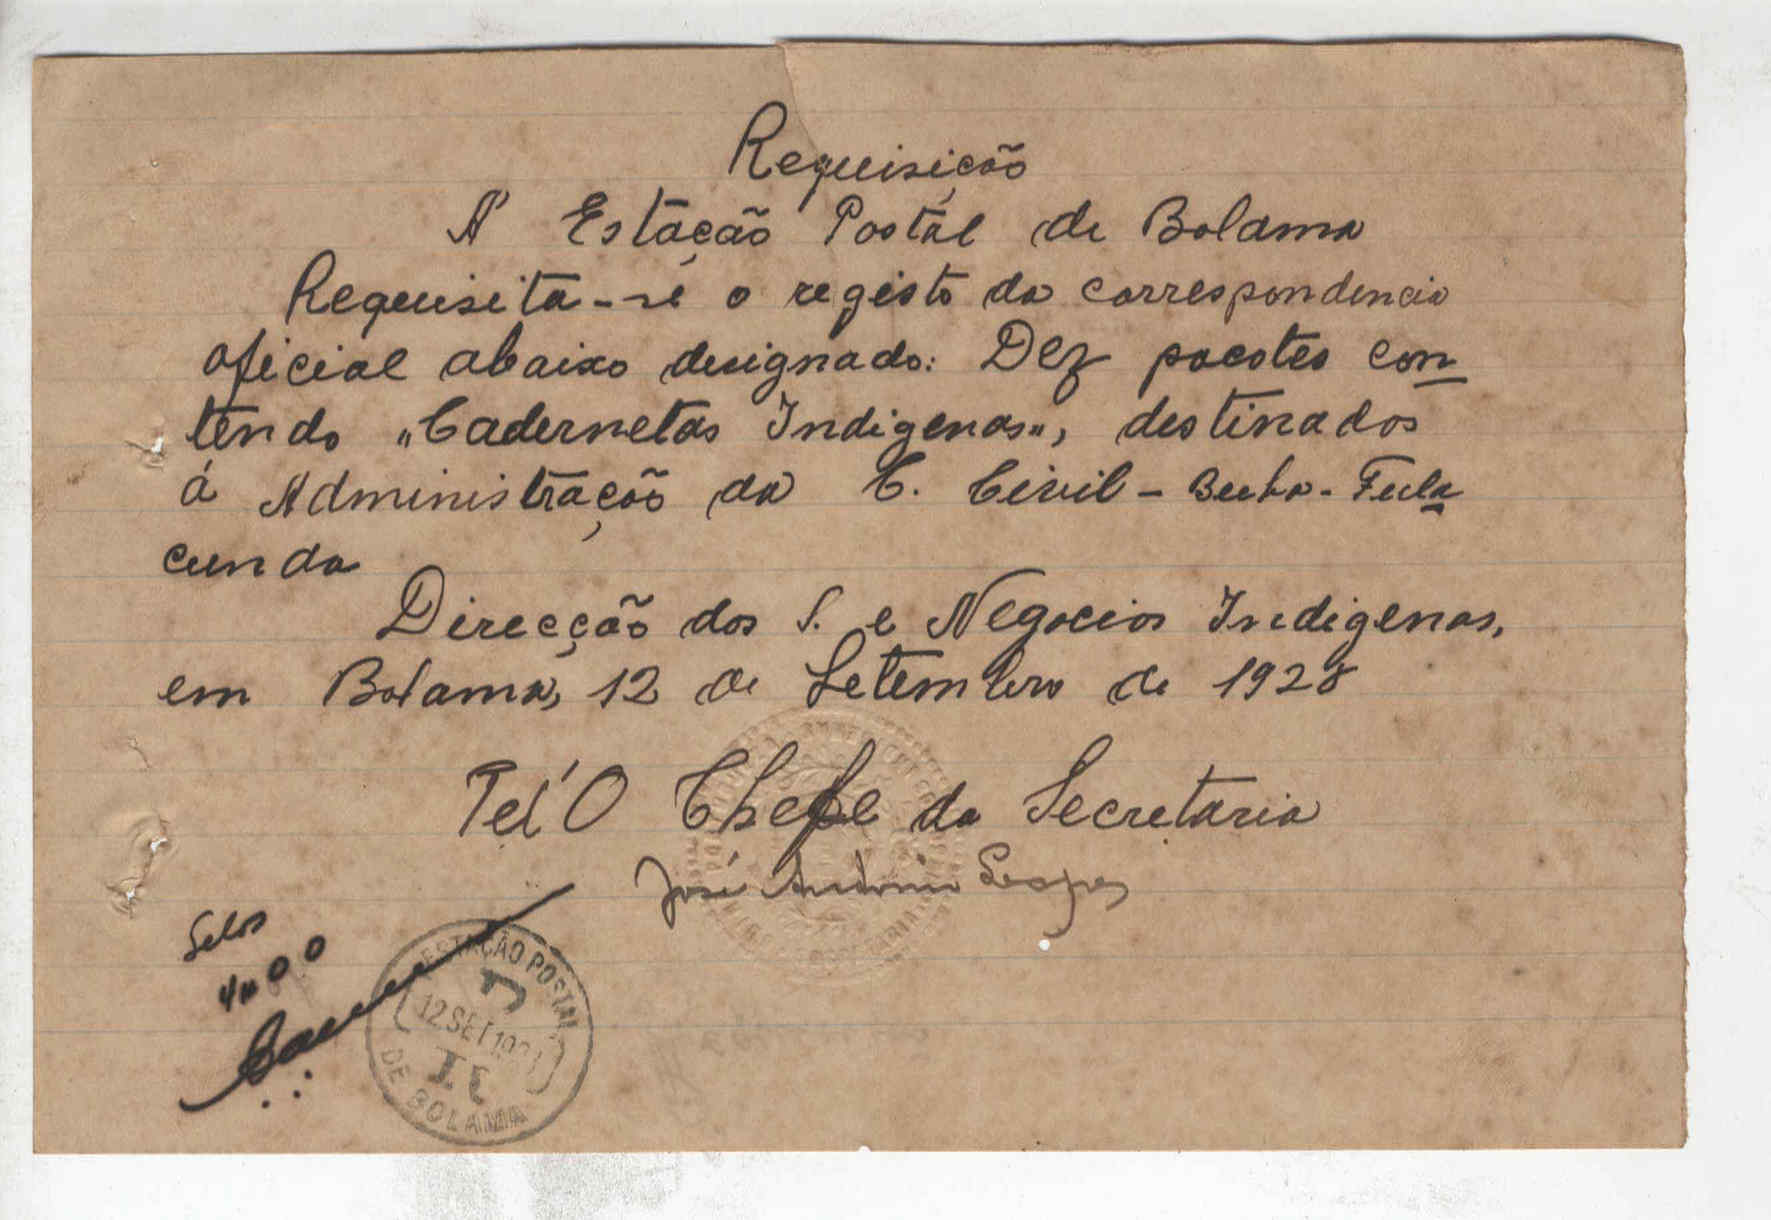 Requisição
Á Estação Postal de Bolama
Requisita-se o registo da correspondencia
oficial abaixo designado: Dez pacotes con
tendo "Cadernetas Indigenas", destinados
á Administração da C. Civil - Buba - Fula
cunda
Direcção dos S. e Negocios Indigenas,
em Bolama, 12 de Setembro de 1928
Pel'O Chefe da Secretaria
José António Lopes
Selos
4$00
ESTAÇÃO POSTAL
12 SET 192
DE BOLAMA